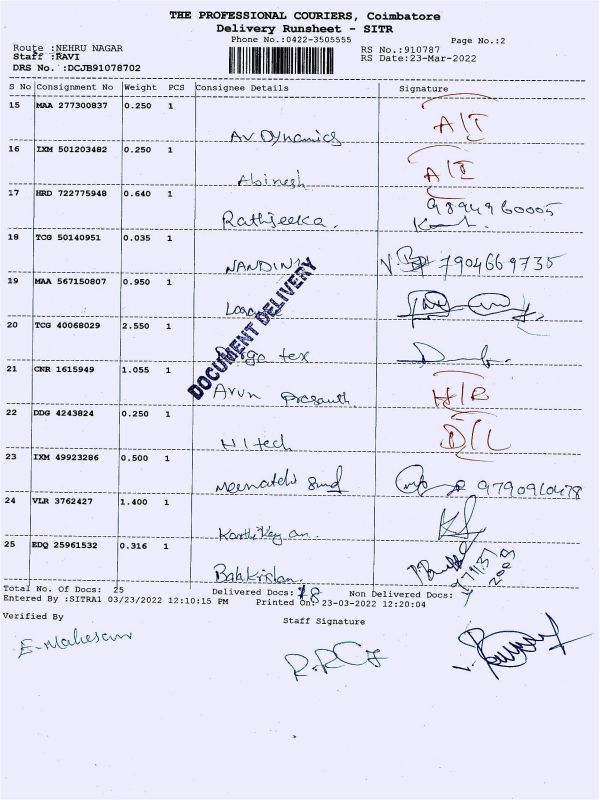 THE PROFESSIONAL COURIERS, Coimbatore
Delivery Runsheet - SITR
Phone No.:0422-3505555
Page No.:2
Route :NEHRU NAGAR
RS No.:910787
Staff :RAVI
RS Date:23-Mar-2022
DRS No. :DCJB91078702
S No Consignment No Weight PCS Consignee Details Signature
15 MAA 277300837 0.250 1
Av Dynamics A/I
16 IXM 501203482 0.250 1
Abinesh A/I
17 HRD 722775948 0.640 1
9894960005
Rathjeeka.
18 TCG 50140951 0.035 1
NANDINI 7904669735
19 MAA 567150807 0.950 1
20 TCG 40068029 2.550 1
tex
DOCUMENT DELIVERY
21 CNR 1615949 1.055 1
Arun Prasanth. H/R
22 DDG 4243824 0.250 1
Hitech D/L
23 IXM 49923286 0.500 1
9790910478
24 VLR 3762427 1.400 1
Karthikeyan.
25 EDQ 25961532 0.316 1
Balakrishnan.
Total No. Of Docs: 25 Delivered Docs: 18 Non Delivered Docs: 7
Entered By :SITRA1 03/23/2022 12:10:15 PM Printed On: 23-03-2022 12:20:04
Verified By Staff Signature
E-Mahesan